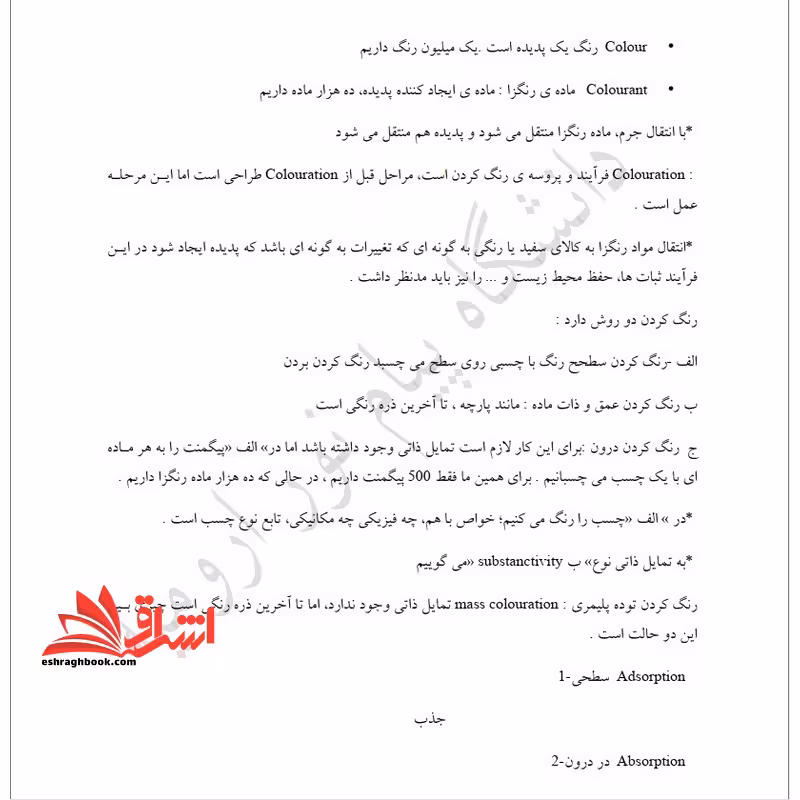 • Colour رنگ یک پدیده است .یک میلیون رنگ داریم
• Colourant ماده ی رنگزا : ماده ی ایجاد کننده پدیده، ده هزار ماده داریم
*با انتقال جرم، ماده رنگزا منتقل می شود و پدیده هم منتقل می شود
: Colouration فرآیند و پروسه ی رنگ کردن است، مراحل قبل از Colouration طراحی است اما ایـن مرحلـه
عمل است .
*انتقال مواد رنگزا به کالای سفید یا رنگی به گونه ای که تغییرات به گونه ای باشد که پدیده ایجاد شود در ایـن
فرآیند ثبات ها، حفظ محیط زیست و ... را نیز باید مدنظر داشت .
رنگ کردن دو روش دارد :
الف -رنگ کردن سطحح رنگ با چسبی روی سطح می چسبد رنگ کردن بردن
ب رنگ کردن عمق و ذات ماده : مانند پارچه ، تا آخرین ذره رنگی است
ج رنگ کردن درون :برای این کار لازم است تمایل ذاتی وجود داشته باشد اما در» الف «پیگمنت را به هر مـاده
ای با یک چسب می چسبانیم . برای همین ما فقط 500 پیگمنت داریم ، در حالی که ده هزار ماده رنگزا داریم .
*در » الف «چسب را رنگ می کنیم؛ خواص با هم، چه فیزیکی چه مکانیکی، تابع نوع چسب است .
*به تمایل ذاتی نوع» ب substanctivity «می گوییم
رنگ کردن توده پلیمری : mass colouration تمایل ذاتی وجود ندارد، اما تا آخرین ذره رنگی است
این دو حالت است .
Adsorption سطحی-1
جذب
Absorption در درون-2
دانشگاه پیام نور ارومیه
اشراق
eshraghbook.com